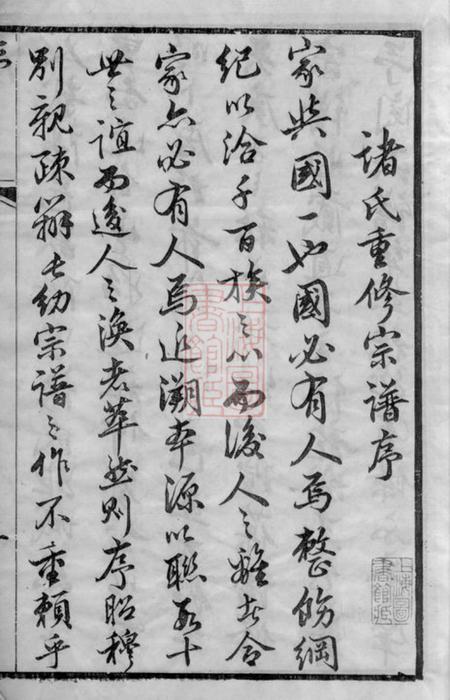 諸氏重修宗譜序
家與國一也國必有人焉整飭綱
紀以洽千百族之心而後人之離者合
家亦必有人焉近溯本源以聯數十
世之誼而後人之渙者萃然則序昭穆
別親疎辨長幼宗譜之作不重賴乎
上海圖書館藏
上海圖書館藏